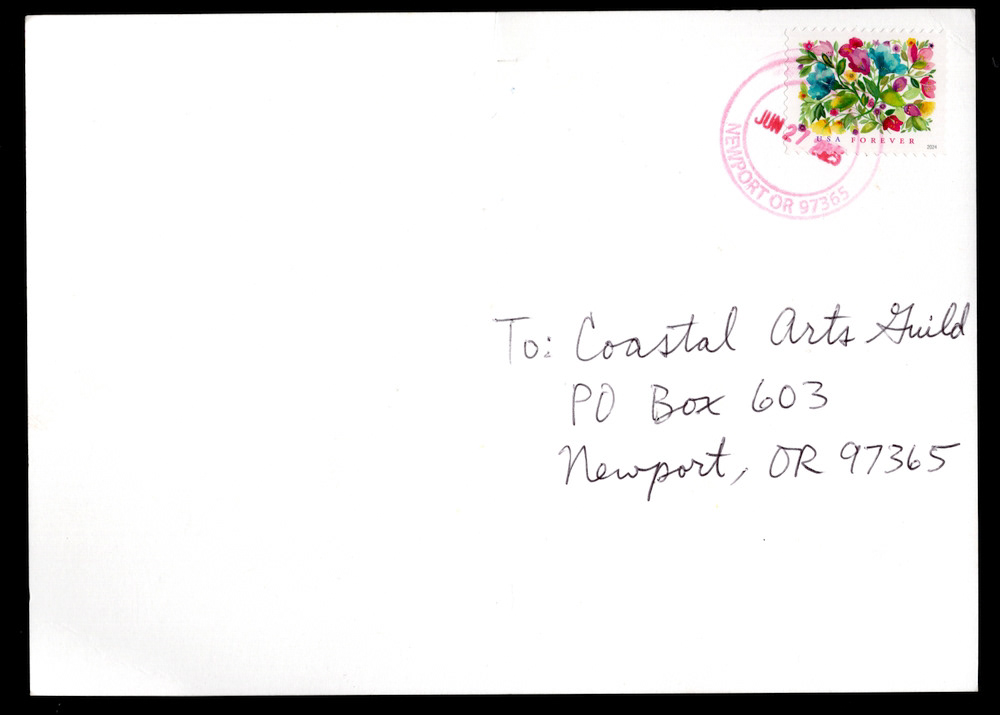 JUN 27
NEWPORT OR 97365
USA FOREVER
2024
To: Coastal Arts Guild
PO Box 603
Newport, OR 97365